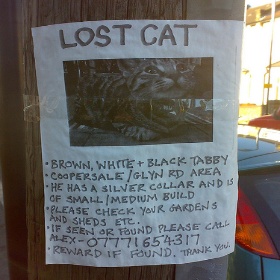 LOST CAT
• BROWN, WHITE + BLACK TABBY
• COOPERSALE / GLYN RD AREA
• HE HAS A SILVER COLLAR AND IS
OF SMALL/MEDIUM BUILD
• PLEASE CHECK YOUR GARDENS
AND SHEDS ETC.
• IF SEEN OR FOUND PLEASE CALL
ALEX - 07771654317
• REWARD IF FOUND. THANK YOU.